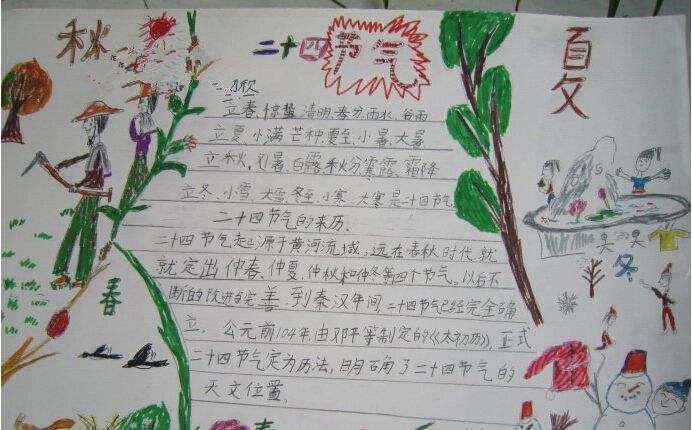 秋
二十四节气
夏
立春、惊蛰、清明、春分、雨水、谷雨
立夏、小满、芒种、夏至、小暑、大暑
立秋、处暑、白露、秋分、寒露、霜降
立冬、小雪、大雪、冬至、小寒、大寒是二十四节气。
二十四节气的来历.
二十四节气起源于黄河流域,远在春秋时代,就
就定出仲春、仲夏、仲秋和仲冬等四个节气。以后不
断的改进与完善,到秦汉年间,二十四节气已经完全确
立.公元前104年,由邓平等制定的《太初历》,正式
二十四节气定为历法,明确了二十四节气的
天文位置.
春
冬